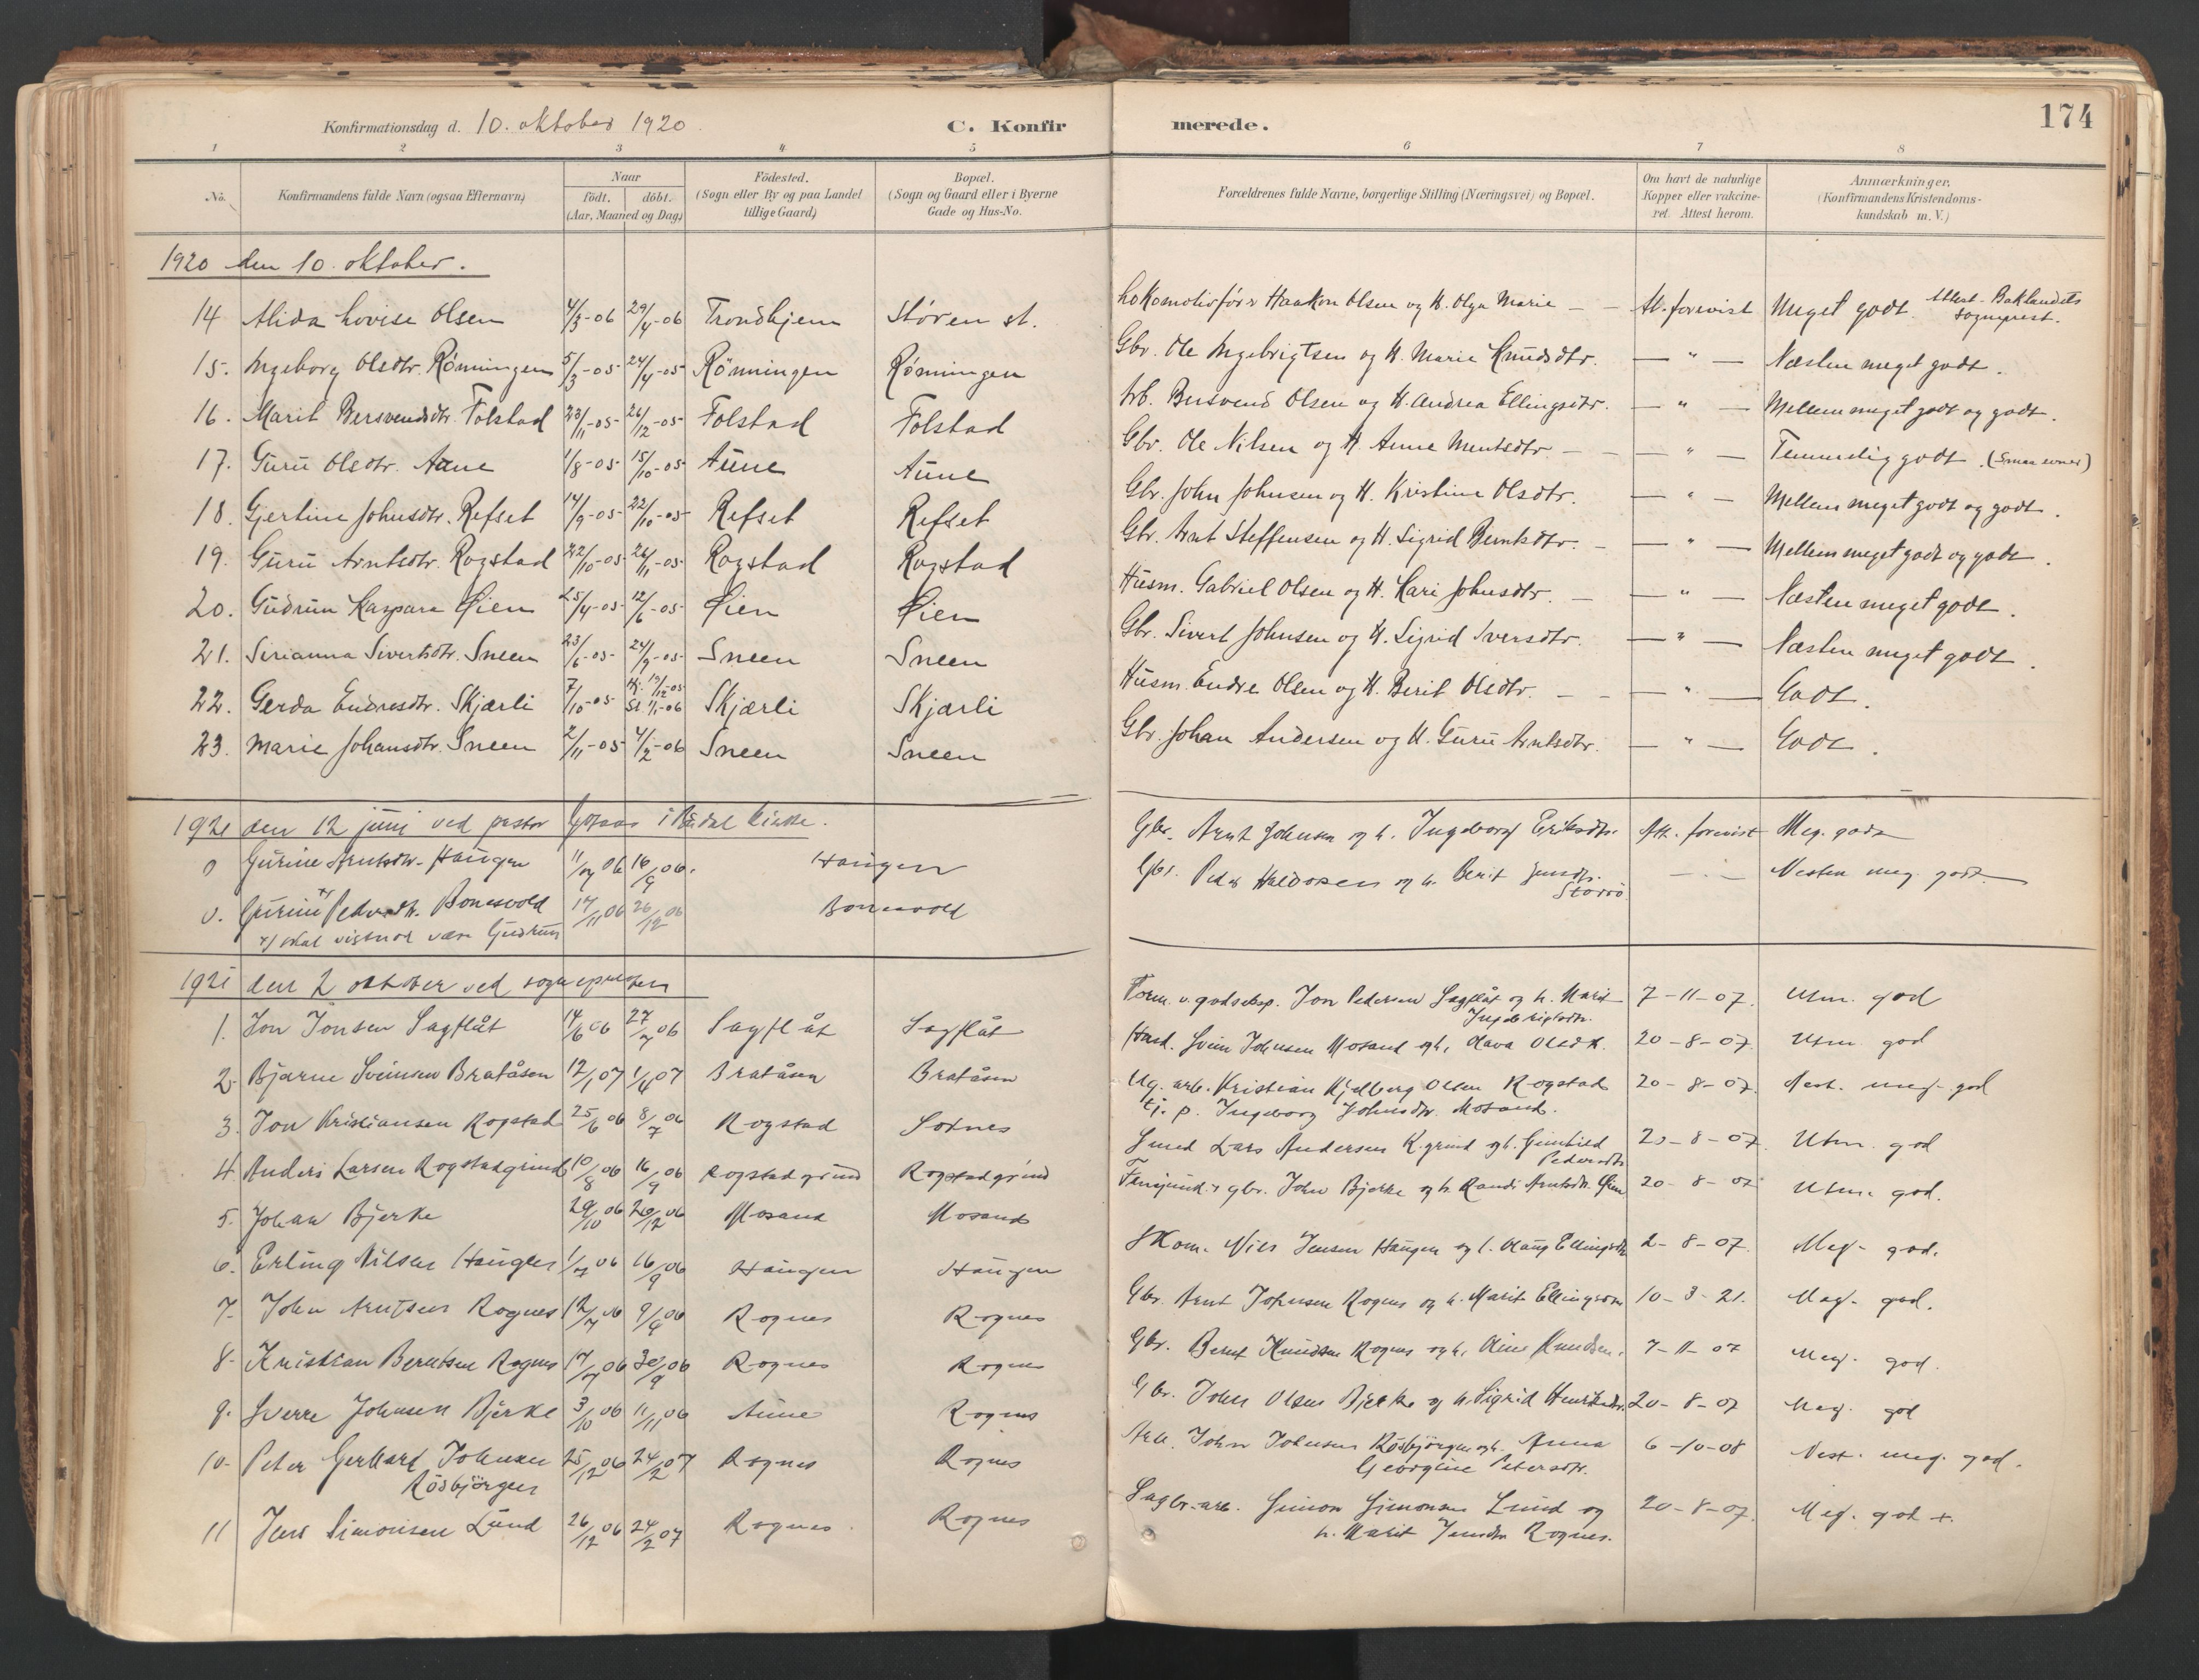 Konfirmationsdag d. 10. oktober 1920. C. Konfirmerede. 174
1 2 3 4 5 6 7 8
No. Konfirmandens fulde Navn (ogsaa Efternavn) Naar født. døbt. (Aar, Maaned og Dag) Fødested. (Sogn eller By og paa Landet tillige Gaard) Bopæl. (Sogn og Gaard eller i Byerne Gade og Hus-No. Forældrenes fulde Navne, borgerlige Stilling (Næringsvei) og Bopæl. Om havt de naturlige Kopper eller vakcineret. Attest herom. Anmærkninger. (Konfirmandens Kristendomskundskab m. V.)
1920 den 10. oktober.
14 Alida Lovise Olsen 4/3-06 29/4-06 Trondhjem Støren st. Lokomotivfører Haakon Olsen og H. Olga Marie — — At. forevist Meget godt. Attest. Baklandets Sogneprest.
15. Ingeborg Olsdtr. Rønningen 5/3-05 24/4-05 Rønningen Rønningen Gbr. Ole Ingebrigtsen og H. Marie Knudsdtr. — " — Næsten meget godt.
16. Marit Bersvendsdtr. Folstad 23/11-05 26/12-05 Folstad Folstad Arb. Bersvend Olsen og H. Andrea Ellingsdtr. — " — Mellem meget godt og godt.
17. Guru Olsdtr. Aune 1/8-05 15/10-05 Aune Aune Gbr. Ole Nilsen og H. Anne Mentsdtr. — — " — Temmelig godt. (Smaa evner)
18. Gjertine Johnsdtr. Refset 14/9-05 22/10-05 Refset Refset Gbr. John Johnsen og H. Kristine Olsdtr. — " — Mellem meget godt og godt.
19. Guru Arntsdtr. Rogstad 22/10-05 26/11-05 Rogstad Rogstad Gbr. Arnt Steffensen og H. Sigrid Berntsdtr. — — " — Mellem meget godt og godt.
20. Gudrun Kaspara Øien 25/4-05 12/6-05 Øien Øien Husm. Gabriel Olsen og H. Kari Johnsdtr. — — " — Næsten meget godt.
21. Serianna Sivertsdtr. Sneen 23/6-05 24/9-05 Sneen Sneen Gbr. Sivert Johnsen og H. Sigrid Iversdtr. — " — Næsten meget godt.
22. Gerda Endresdtr. Skjærli 7/10-05 Hj. /12-05 St. 1/1-06 Skjærli Skjærli Husm. Endre Olsen og H. Berit Olsdtr. — — " — Godt.
23. Marie Johansdtr. Sneen 2/11-05 4/2-06 Sneen Sneen Gbr. Johan Andersen og H. Guru Arntsdtr. — " — Godt.
1921 den 12 juni ved pastor i kirke.
Gurine Arntsdtr. Haugen 11/7 06 16/9 06. Haugen Gbr. Arnt Johnsen og h. Ingeborg Eriksdtr. Att. forevist Meg. godt
Gurine x) Pedersdtr. Bonesvold 14/11 06 26/12 06 Bonesvold Gbr. Peder Haldorsen og h. Berit Jensdtr. Storrø — Nesten meg. godt.
x) skal vistnok være Gudrun
1921 den 2 oktober ved sognepresten
1. Jon Jonsen Sagflåt 14/6 06 27/7 06 Sagflåt Sagflåt Form. v. godsexp. Jon Pedersen Sagflåt og h. Marit Ingebrigtsdtr. 7-11-07. Utm. god
2. Bjarne Sveinsen Bratåsen 12/1 07 1/4 07 Bratåsen Bratåsen Svein Johnsen Mosand og h. Olava Olsdtr. 20-8-07. Utm. god
3. Jon Kristiansen Rogstad 25/6 06 8/7 06 Rogstad Soknes Ug. arb. Kristian Kjelberg Olsen Rogstad tj. p. Ingeborg Johnsdtr. Mosand. 20-8-07. Nest. meg. god
4. Anders Larsen Rogstadgrind 10/8 06 16/9 06 Rogstadgrind Rogstadgrind Smed Lars Andersen R.grind og h. Gunhild Pedersdtr. 20-8-07. Utm. god
5. Johan Bjerke 29/10 06 26/12 06 Mosand Mosand gbr. John Bjerke og h. Randi Arntsdtr. Øien 20-8-07 Utm. god.
6. Erling Nilsen Haugen 1/7 06 16/9 06 Haugen Haugen Skom. Nils Jensen Haugen og h. Ellingsdtr. 2-8-07. Meg. god.
7. John Arntsen Rognes 12/7 06 9/9 06 Rognes Rognes Gbr. Arnt Johnsen Rognes og h. Marit Ellingsdtr. 10-3-21. Meg. god.
8. Kristian Berntsen Rognes 17/7 06 30/9 06 Rognes Rognes Gbr. Bernt Knudsen Rognes og h. Knudsen. 7-11-07 Meg. god.
9. Sverre Johnsen Bjerke 3/10 06 11/11 06 Aune Rognes Gbr. John Olsen Bjerke og h. Sigrid Henriksdtr. 20-8-07 Meg. god
10. Peter Gerhard Johnsen Røsbjørgen 25/12 06 24/2 07 Rognes Rognes Arb. John Johnsen Røsbjørgen og h. Anna Georgine Petersdtr. 6-10-08 Nest. meg. god.
11 Jens Simonsen Lund 26/12 06 24/2 07 Rognes Rognes Sagbr. arb. Simon Simonsen Lund og h. Marit Jensdtr. Rognes. 20-8-07. Meg. god +.